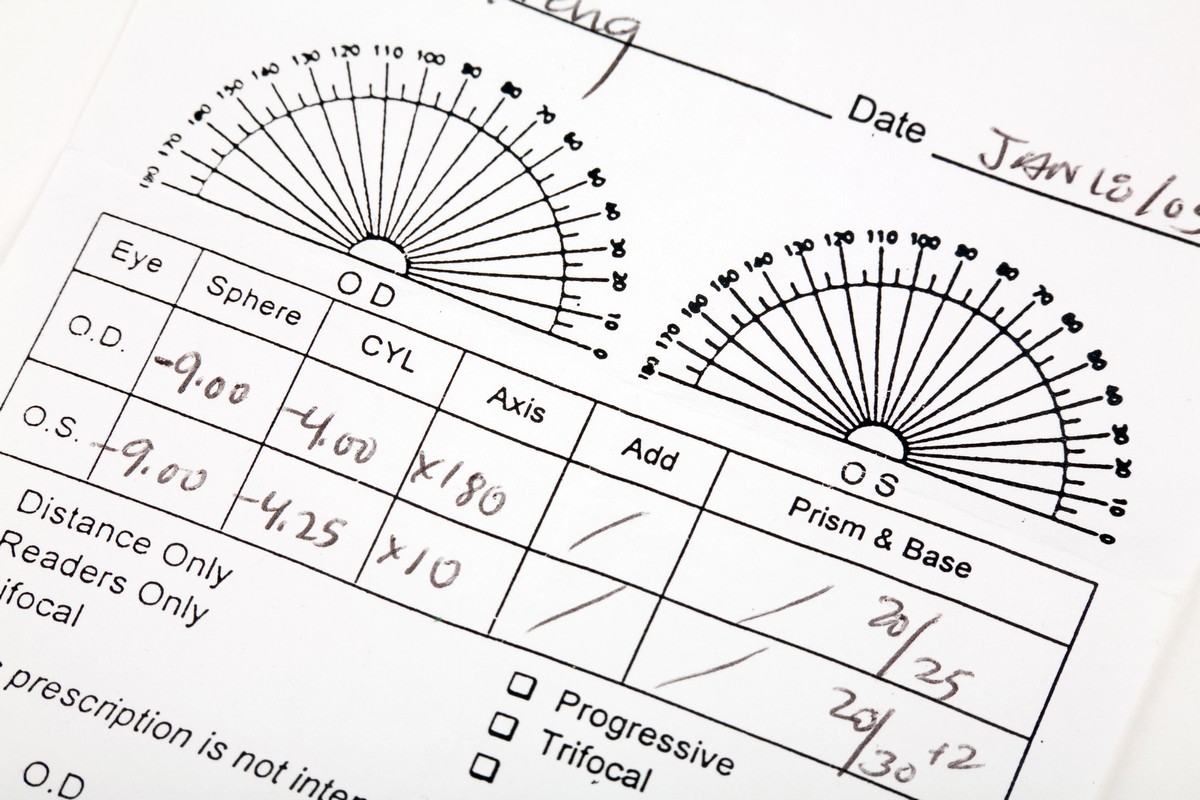 Date JAN 18/05
180 170 160 150 140 130 120 110 100 90 80 70 60 50 40 30 20 10 0
OD
180 170 160 150 140 130 120 110 100 90 80 70 60 50 40 30 20 10 0
OS
Eye Sphere CYL Axis Add Prism & Base
O.D. -9.00 -4.00 x180 / / 20/25
O.S. -9.00 -4.25 x10 / / 20/30 +2
Distance Only
Readers Only
ifocal
Progressive
Trifocal
prescription is not inter
O.D